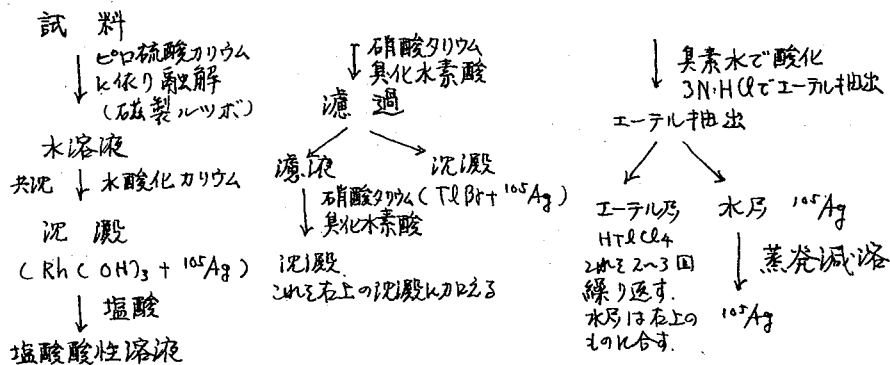 試料
ピロ硫酸カリウム
に依り融解
(磁製ルツボ)
水溶液
共沈 水酸化カリウム
沈澱
(Rh(OH)3 + 105Ag)
塩酸
塩酸酸性溶液
硝酸タリウム
臭化水素酸
濾過
濾液 沈澱
硝酸タリウム (TlBr + 105Ag)
臭化水素酸
沈澱
これを右上の沈澱に加える
臭素水で酸化
3N・HClでエーテル抽出
エーテル抽出
エーテル層 水層 105Ag
HTlCl4
これを2〜3回
繰り返す.
水層は右上の
ものに合す.
蒸発減溶
105Ag